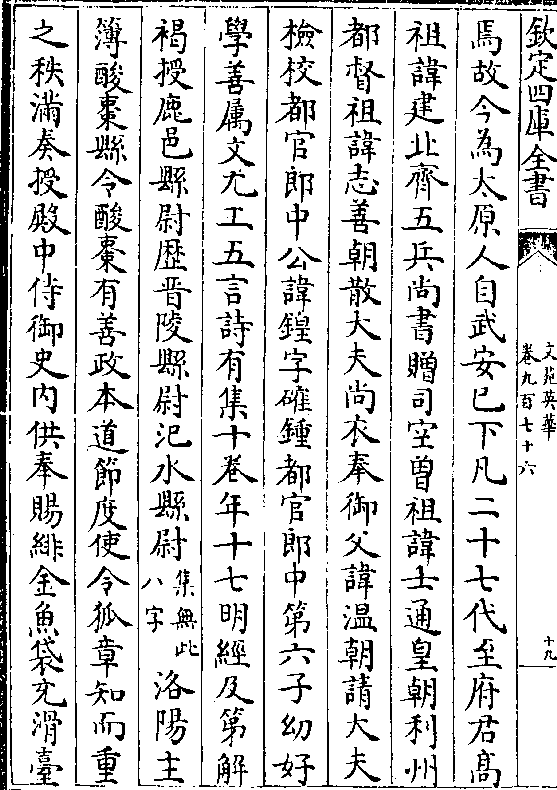 欽定四庫全書
文苑英華
卷九百七十六
十九
焉故今為太原人自武安已下凡二十七代至府君高
祖諱建北齊五兵尚書贈司空曾祖諱士通皇朝利州
都督祖諱志善朝散大夫尚衣奉御父諱温朝請大夫
檢校都官郎中公諱鍠字確鍾都官郎中第六子幼好
學善属文尤工五言詩有集十卷年十七明經及第解
褐授鹿邑縣尉歴晉陵縣尉汜水縣尉集無此八字洛陽主
簿酸棗縣令酸棗有善政本道節度使令狐章知而重
之秩滿奏授殿中侍御史内供奉賜緋金魚袋充滑臺